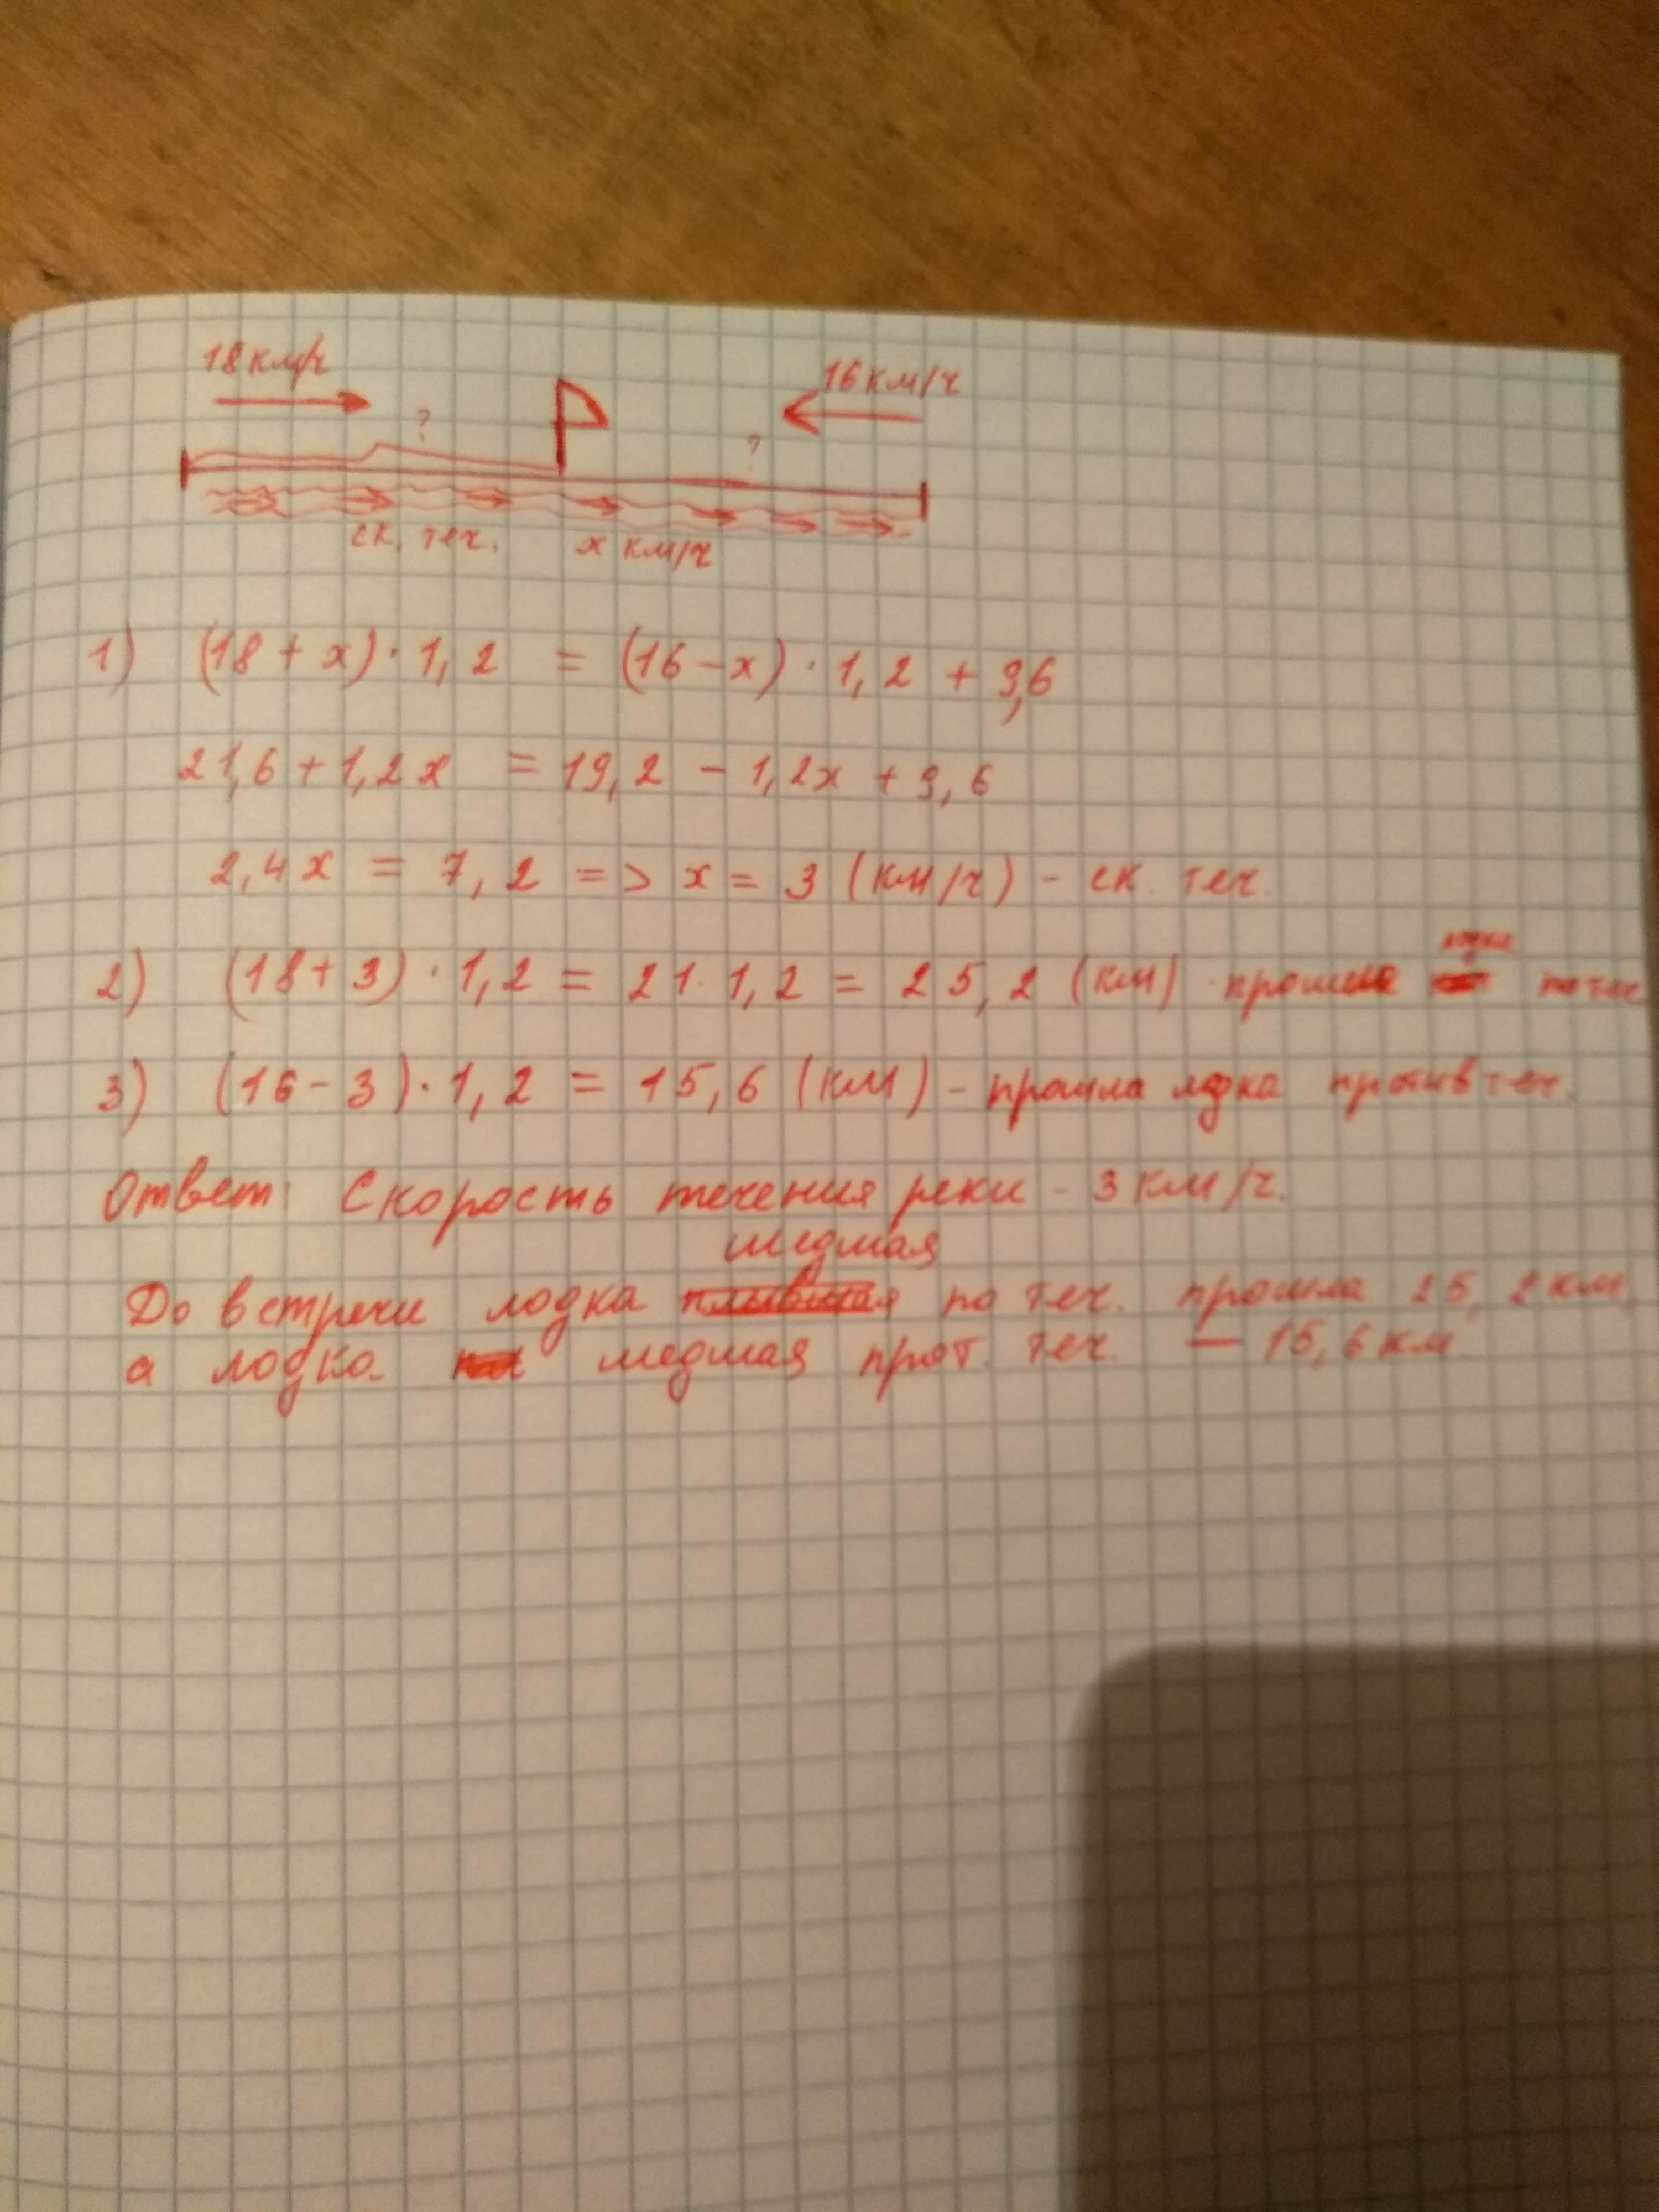 18 км/ч
16 км/ч
? ?
ск. теч. x км/ч
1) (18 + x) · 1,2 = (16 - x) · 1,2 + 9,6
21,6 + 1,2x = 19,2 - 1,2x + 9,6
2,4x = 7,2 => x = 3 (км/ч) - ск. теч.
лодка
2) (18 + 3) · 1,2 = 21 · 1,2 = 25,2 (км) - прошла по теч
3) (16 - 3) · 1,2 = 15,6 (км) - прошла лодка против теч.
Ответ: Скорость течения реки - 3 км/ч.
шедшая
До встречи лодка плывшая по теч. прошла 25,2 км,
а лодка шедшая прот. теч. — 15,6 км